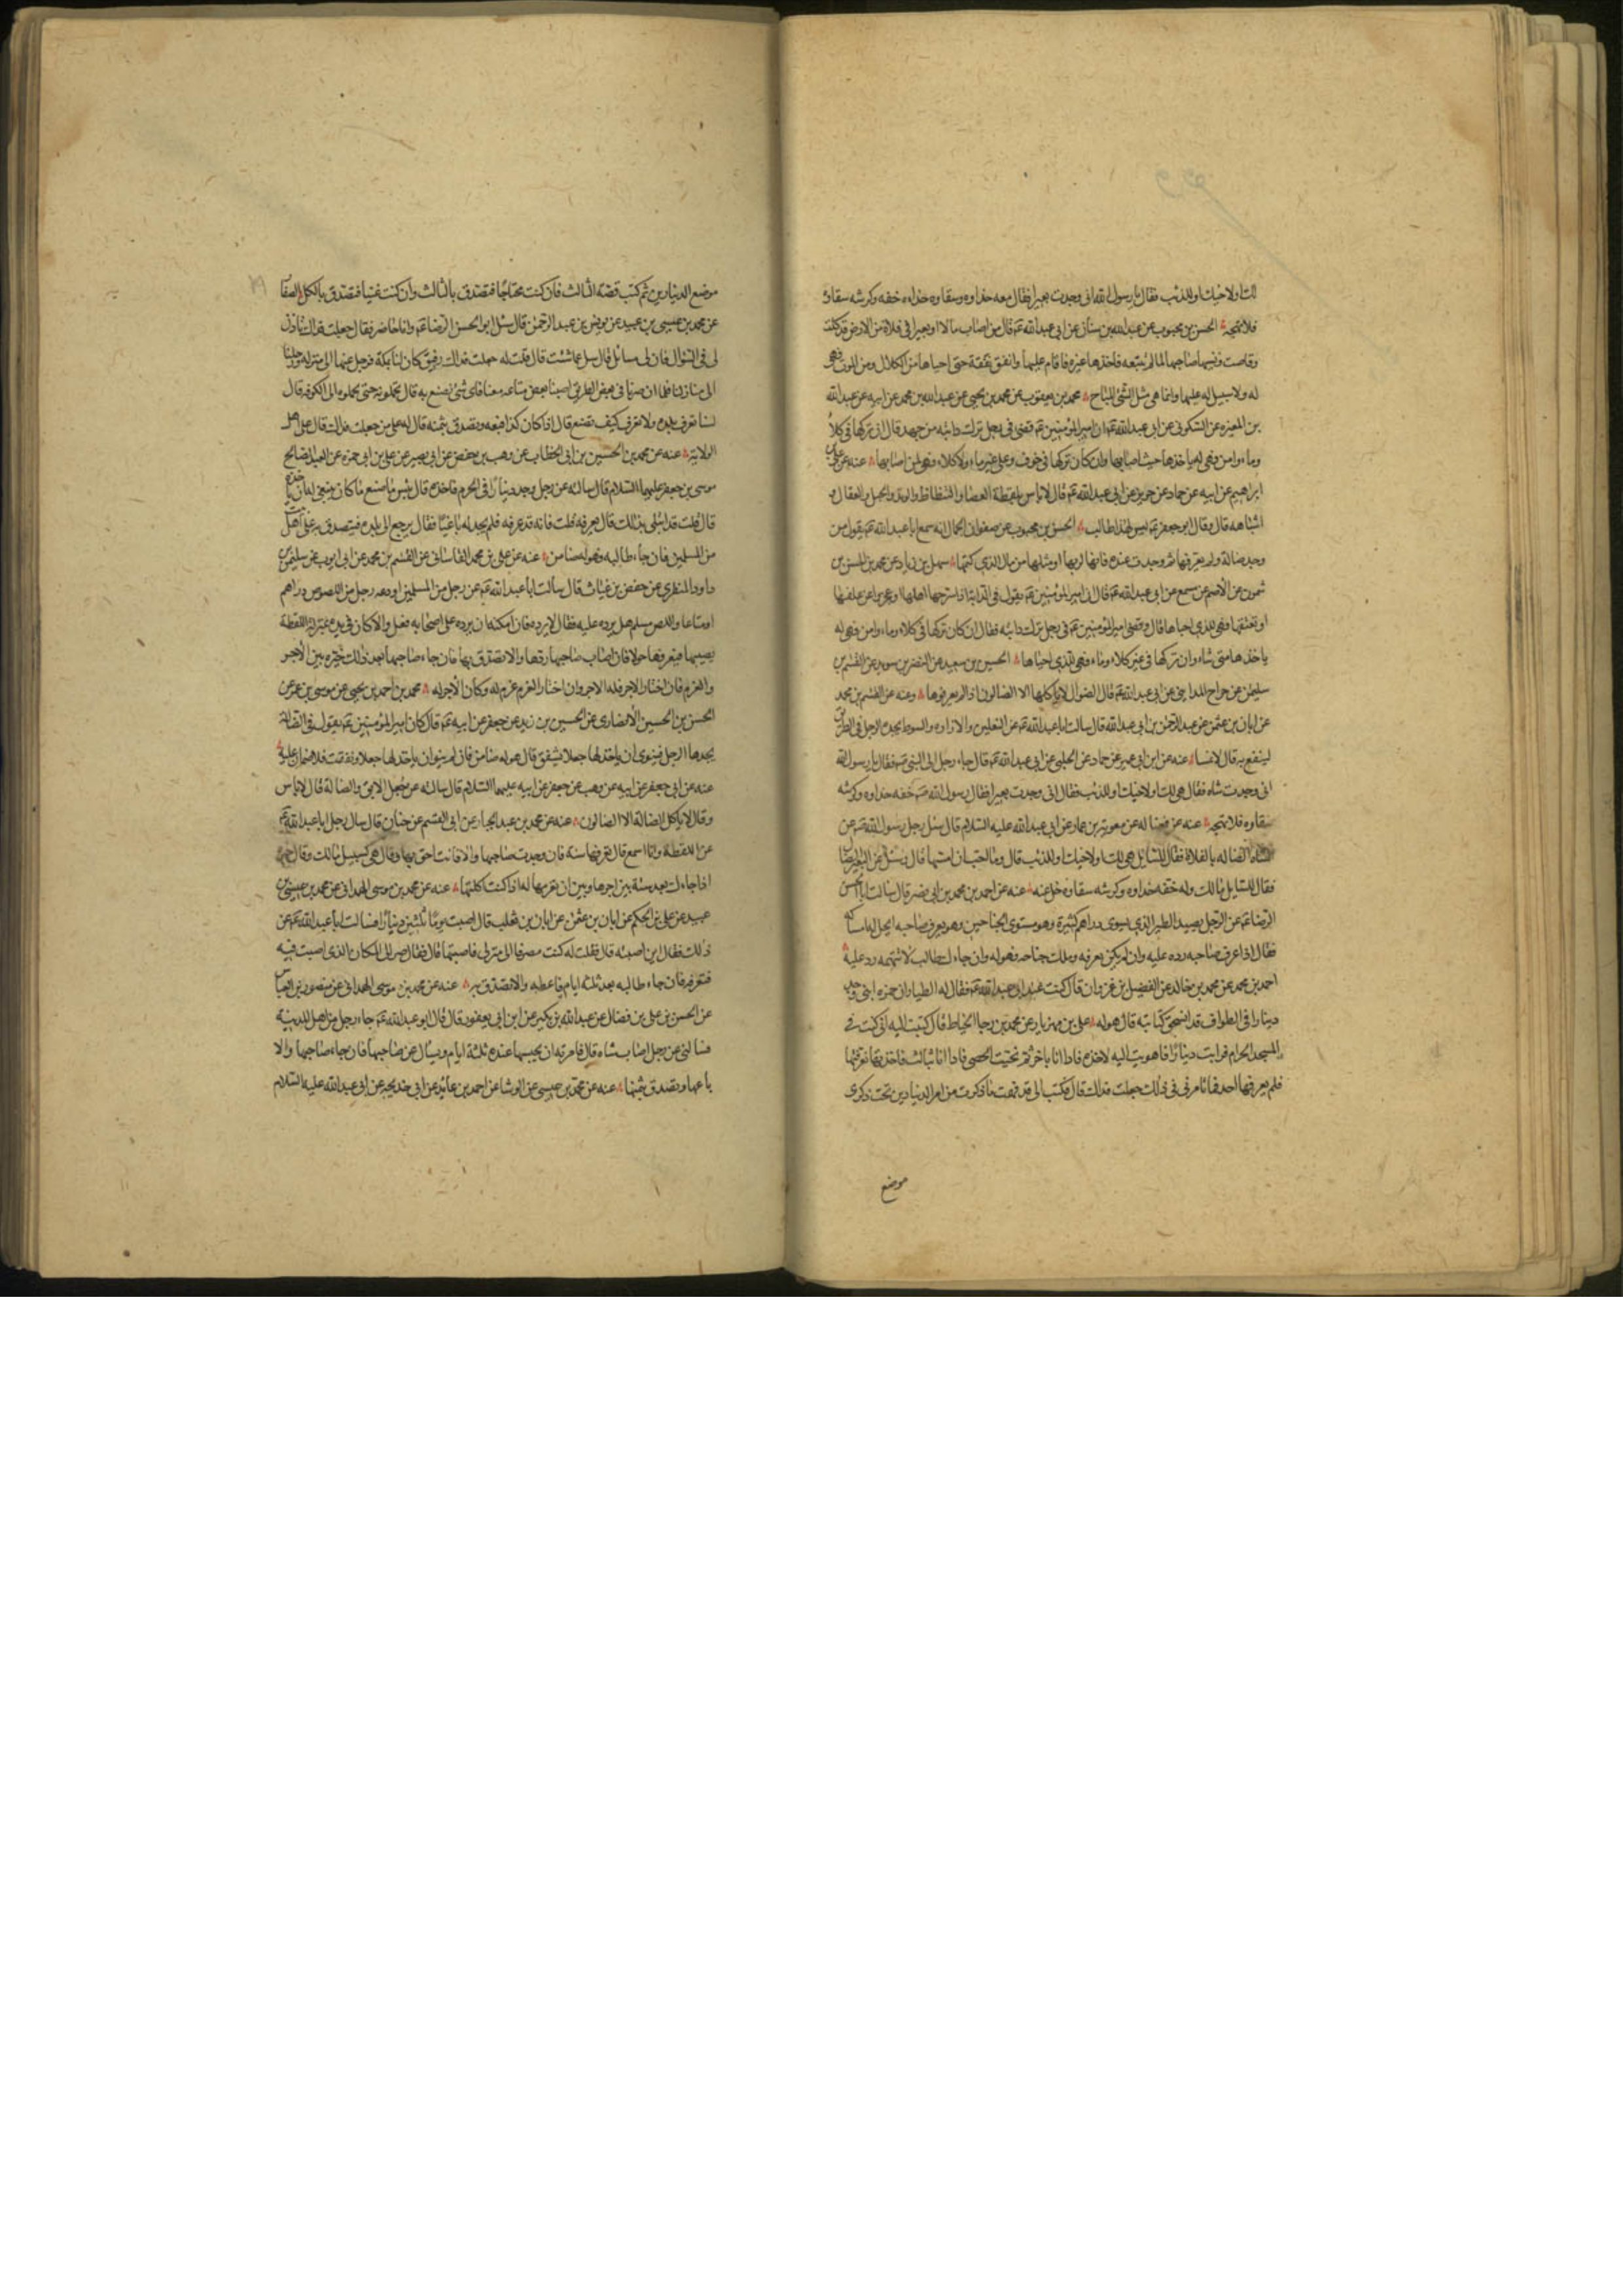 لك او لاخيك او للذئب فقال يا رسول الله انى وجدت بعيرا فقال معه حذاوه وسقاوه حذاءه خفه وكرشه سقاؤه
فلا تهجه الحسن بن محبوب عن عبدالله بن سنان عن ابى عبدالله عم قال من اصاب مالا او بعيرا فى فلاة من الارض قد كلت
وقامت ونسيها صاحبها لما لم يتبعه فاخذها غيره فاقام عليها وانفق نفقة حتى احياها من الكلال ومن الموت فهى
له ولا سبيل له عليها وانما هى مثل الشئ المباح محمد بن يعقوب عن محمد بن يحيى عن عبدالله بن محمد عن ابيه عن عبدالله
بن المغيره عن السكونى عن ابى عبدالله عم ان امير المؤمنين عم قضى فى رجل ترك دابته من جهد قال ان تركها فى كلاء
وماء وامن فهى له ياخذها حيث اصابها وان كان تركها فى خوف وعلى غير ماء ولا كلاء فهى لمن اصابها عنه عن على
ابراهيم عن ابيه عن حماد عن حريز عن ابى عبدالله عم قال لا باس بلقطة العصا والشظاظ والوتد والحبل والعقال و
اشباهه قال وقال ابو جعفر عم ليس لهذا طالب الحسن بن محبوب عن صفوان الجمال انه سمع ابا عبدالله عم يقول من
وجد ضالة ولم يعرفها ثم وجدت عنده فانها لربها او مثلها من مال الذي كتمها سهل بن زياد عن محمد بن الحسن بن
شمون عن الاصم عن مسمع عن ابى عبدالله عم قال ان امير المؤمنين عم يقول فى الدابة اذا سرحها اهلها او عجزوا عن علفها
او نفقتها فهى للذي احياها قال وقضى امير المؤمنين عم فى رجل ترك دابته فقال ان كان تركها فى كلاء وماء وامن فهى له
ياخذها متى شاء وان تركها فى غير كلاء وماء فهى للذي احياها الحسين بن سعيد عن النضر بن سويد عن القسم بن
سليمن عن جراح المداينى عن ابى عبدالله عم قال الضوال لا ياكلها الا الضالون اذا لم يعرفوها وعنه عن القسم بن محمد
عن ابان بن عثمن عن عبدالرحمن بن ابى عبدالله قال سالت ابا عبدالله عم عن النعلين والاداوه والسوط يجده الرجل فى الطريق
لينتفع به قال لا تمسه عنه عن ابن ابى عمير عن حماد عن الحلبى عن ابى عبدالله عم قال جاء رجل الى النبى ص فقال يا رسول الله
انى وجدت شاه فقال هى لك او لاخيك او للذئب فقال انى وجدت بعيرا فقال رسول الله ص خفه حذاوه وكرشه
سقاوه فلا تهجه عنه عن فضاله عن معوية بن عمار عن ابى عبدالله عليه السلام قال سئل رجل رسول الله ص عن
الشاه الضاله بالفلاة فقال للسايل هى لك او لاخيك او للذئب قال وما احب ان امسها قال وسئل عن البعير الضال
فقال للسايل مالك وله خفه حذاوه وكرشه سقاوه خل عنه عنه عن احمد بن محمد بن ابى نصر قال سالت ابا الحسن
الرضا عم عن الرجل يصيد الطير الذي يسوى دراهم كثيرة وهو مستوى الجناحين وهو يعرف صاحبه ايحل له امساكه
فقال اذا عرف صاحبه رده عليه وان لم يكن يعرفه وملك جناحه فهو له وان جاءك طالب لا تتهمه رده عليه
احمد بن محمد عن محمد بن خالد عن الفضيل بن غزوان قال كنت عند ابى عبدالله عم فقال له الطيار ان حمزه ابنى وجد
دينارا فى الطواف قد انسحق كتابته قال هو له على بن مهزيار عن محمد بن رجا الخياط قال كتبت اليه انى كنت فى
المسجد الحرام فرايت دينارا فاهويت اليه لاخذه فاذا انا باخر ثم نحيت الحصى فاذا انا بثالث فاخذتها فعرفتها
فلم يعرفها احد فما تامرنى فى ذلك جعلت فداك قال فكتب الى قد فهمت ما ذكرت من امر الدنيارين تحت ذكرى
موضع
موضع الدنيارين ثم كتب قصة الثالث فان كنت محتاجا فتصدق بالثالث وان كنت غنيا فتصدق بالكل الصفار
عن محمد بن عيسى بن عبيد عن يونس بن عبدالرحمن قال سئل ابو الحسن الرضا عم وانا حاضر فقال جعلت فداك تاذن
لى فى السؤال فان لى مسائل قال سل عما شئت قال قلت له جعلت فداك رفيق كان لنا بمكة فرحل عنها الى منزله ورحلنا
الى منازلنا فلما ان صرنا فى بعض الطريق اصبنا بعض متاعه معنا فاى شئ نصنع به قال تحملونه حتى تحملوه الى الكوفه قال
لسنا نعرفه ولا نعرف بلده ولا نعرف كيف نصنع قال اذا كان كذا فبعه وتصدق بثمنه قال له على من جعلت فداك قال على اهل
الولاية عنه عن محمد بن الحسين بن ابى الخطاب عن وهيب بن حفص عن ابى بصير عن على بن ابى حمزه عن العبد الصالح
موسى بن جعفر عليهما السلام قال سالته عن رجل وجد دينارا فى الحرم فاخذه قال بئس ما صنع ما كان ينبغى له ان ياخذه
قال قلت قد ابتلى بذلك قال يعرفه قلت فانه قد عرفه فلم يجد له باغيا فقال يرجع الى بلده فيتصدق به على اهل بيت
من المسلمين فان جاء طالبه فهو له ضامن عنه عن على بن محمد القاسانى عن القسم بن محمد عن ابى ايوب عن سليمن بن
داود المنقري عن حفص بن غياث قال سألت أبا عبدالله عم عن رجل من المسلمين اودعه رجل من اللصوص دراهم
او متاعا واللص مسلم هل يرده عليه فقال لا يرده فان امكنه ان يرده على اصحابه فعل والا كان فى يده بمنزلة اللقطة
يصيبها فيعرفها حولا فان اصاب صاحبها ردها والا تصدق بها فان جاء صاحبها بعد ذلك خيره بين الاجر
والغرم فان اختار الاجر فله الاجر وان اختار الغرم غرم له وكان الاجر له محمد بن احمد بن يحيى عن موسى بن عمر عن
الحسن بن الحسين الانصارى عن الحسين بن زيد عن جعفر عن ابيه عم قال كان امير المؤمنين عم يقول فى الضالة
يجدها الرجل فينوى ان ياخذ لها جعلا فتنفق قال هو له ضامن فان لم ينو ان ياخذ لها جعلا ونفقت فلا ضمان عليه
عنه عن ابى جعفر عن ابيه عن وهب عن جعفر عن ابيه عليهما السلام قال سالته عن جعل الابق والضالة قال لا باس
وقال لا ياكل الضالة الا الضالون عنه عن محمد بن عبدالجبار عن ابى القسم عن حنان قال سال رجل ابا عبدالله عم
عن اللقطة وانا اسمع قال تعرفها سنة فان وجدت صاحبها والا فانت احق بها وقال هى كسبيل مالك وقال خيره
اذا جاءك بعد سنة بين اجرها وبين ان تغرمها له اذا كنت اكلتها عنه عن محمد بن موسى الهمدانى عن محمد بن عيسى بن
عبيد عن على بن الحكم عن ابان بن عثمن عن ابان بن تغلب قال اصبت يوما ثلثين دينارا فسالت ابا عبدالله عم عن
ذلك فقال اين اصبته قال فقلت له كنت منصرفا الى منزلى فاصبتها قال فقال صر الى المكان الذى اصبت فيه
فتعرفه فان جاء طالبه بعد ثلثة ايام فاعطه والا تصدق به عنه عن محمد بن موسى الهمدانى عن منصور بن العباس
عن الحسن بن على بن فضال عن عبدالله بن بكير عن ابن ابى يعفور قال قال ابو عبدالله عم جاء رجل من اهل المدينة
فسالنى عن رجل اصاب شاه قال فامرته ان يحبسها عنده ثلثة ايام ويسال عن صاحبها فان جاء صاحبها والا
باعها وتصدق بثمنها عنه عن محمد بن عيسى عن الوشا عن احمد بن عائذ عن ابى خديجه عن ابى عبدالله عليه السلام